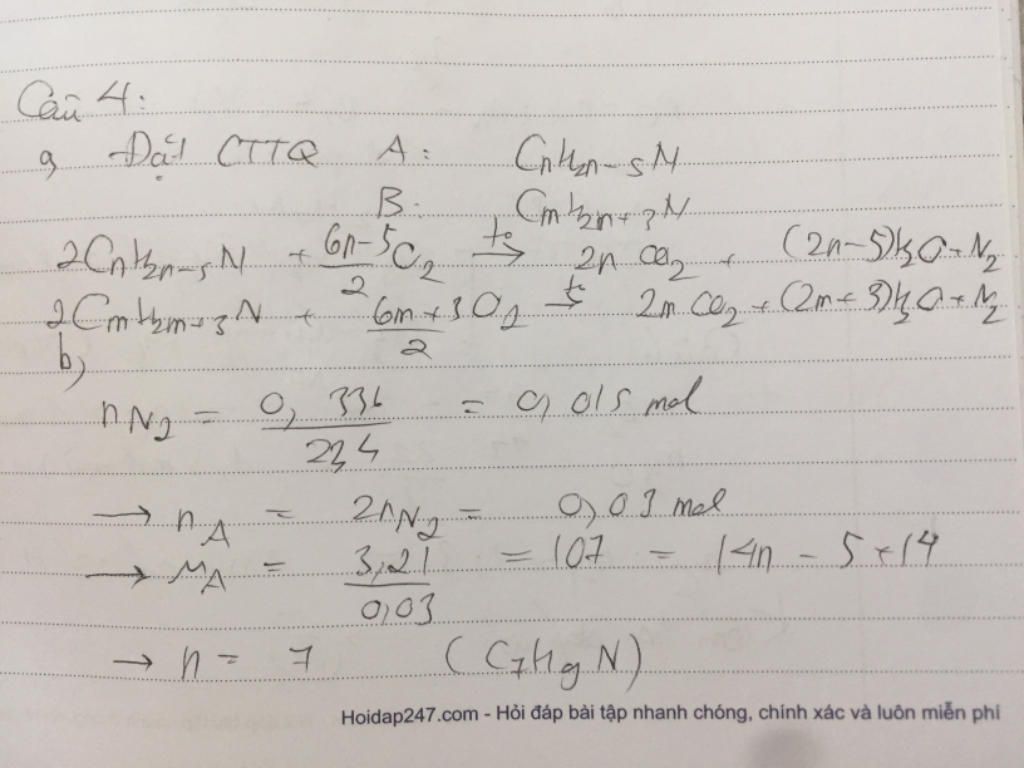 Câu 4:
a, Đặt CTTQ A: CnH2n-5N
B: CmH2n+3N
2CnH2n-5N + 6n-5/2 O2 t° → 2n CO2 + (2n-5)H2O + N2
2CmH2m+3N + 6m+3/2 O2 t° → 2m CO2 + (2m+3)H2O + N2
b)
nN2 = 0,336/22,4 = 0,015 mol
→ nA = 2nN2 = 0,03 mol
→ MA = 3,21/0,03 = 107 = 14n - 5 + 14
→ n = 7 (C7H9N)
Hoidap247.com - Hỏi đáp bài tập nhanh chóng, chính xác và luôn miễn phí